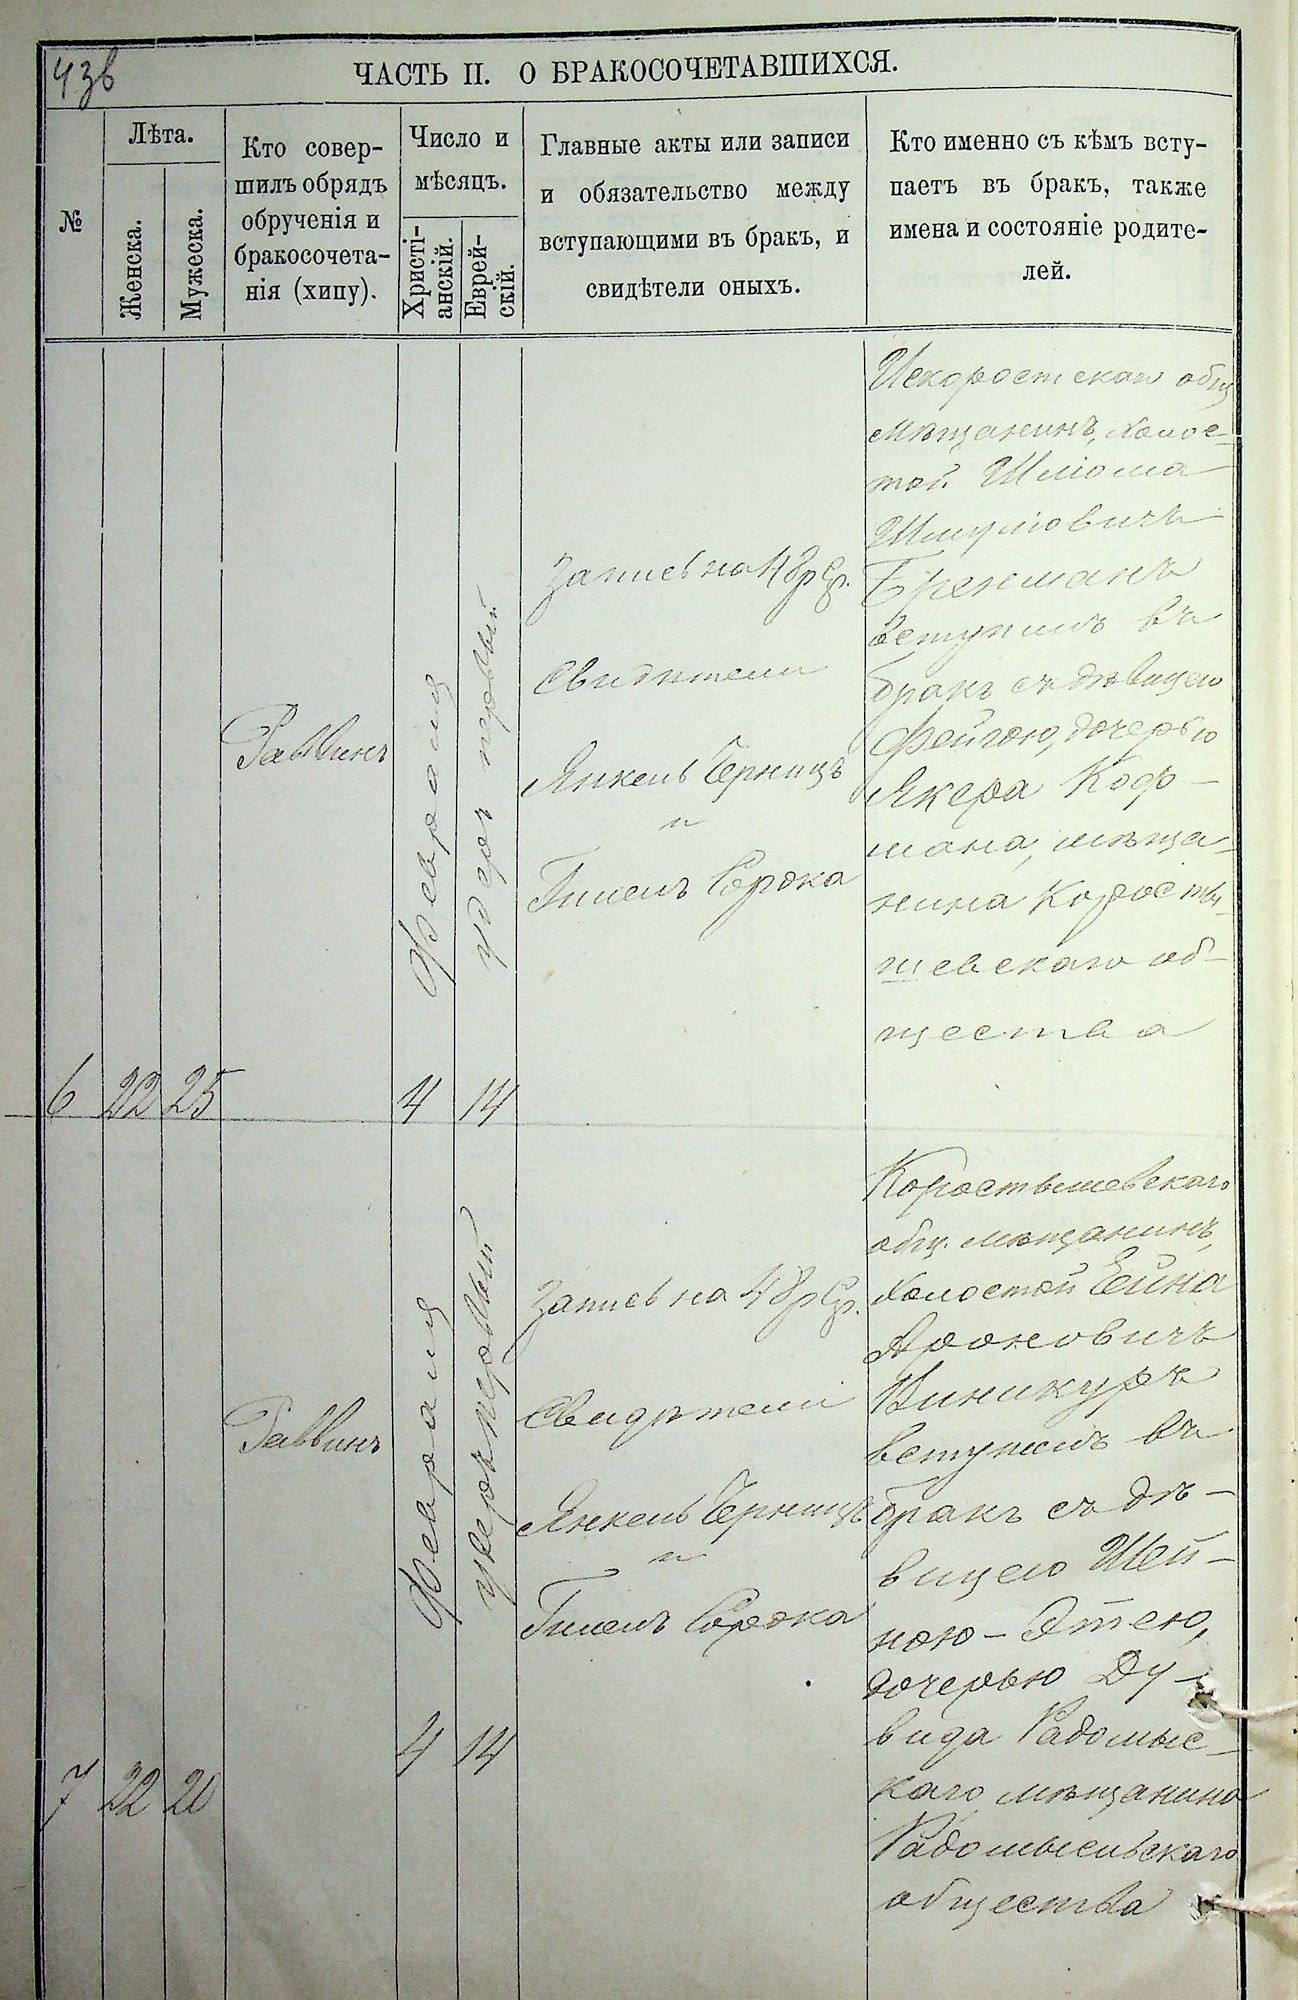 43в
ЧАСТЬ II. О БРАКОСОЧЕТАВШИХСЯ.
№
Лѣта.
Женска.
Мужеска.
Кто совер-
шилъ обрядъ
обрученія и
бракосочета-
нія (хипу).
Число и
мѣсяцъ.
Христі-
анскій.
Еврей-
скій.
Главные акты или записи
и обязательство между
вступающими въ бракъ, и
свидѣтели оныхъ.
Кто именно съ кѣмъ всту-
паетъ въ бракъ, также
имена и состояніе родите-
лей.
6
22
25
Раввинъ
Февраля
4
удеръ первый
14
Запись на 48 р Ср.
Свидѣтели
Янкель Черницъ
и
Гилель Сорока
Искоростскаго общ
мѣщанинъ, холос-
той Шліома
Шмуліовичъ
Бренманъ
вступилъ въ
бракъ съ дѣвицею
Фейгою, дочерью
Якера Коф-
мана, мѣща-
нина Коросты-
шевскаго об-
щества
7
22
20
Раввинъ
Февраля
4
первый
14
Запись на 48 р Ср.
Свидѣтели
Янкель Черницъ
и
Гилель Сорока
Коростышевскаго
общ. мѣщанинъ,
холостой Ейна
Ароновичъ
Виникуръ
вступилъ въ
бракъ съ дѣ-
вицею Шей-
ною-Этею,
дочерью Ду-
вида Радомыс-
каго мѣщанина
Радомысльскаго
общества